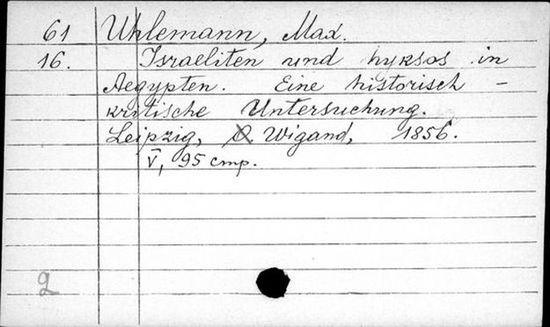 61 Uhlemann, Max.
16. Israeliten und hyksos in
Aegypten. Eine historisch -
kritische Untersuchung.
Leipzig, O. Wigand, 1856.
V, 95 стр.
2